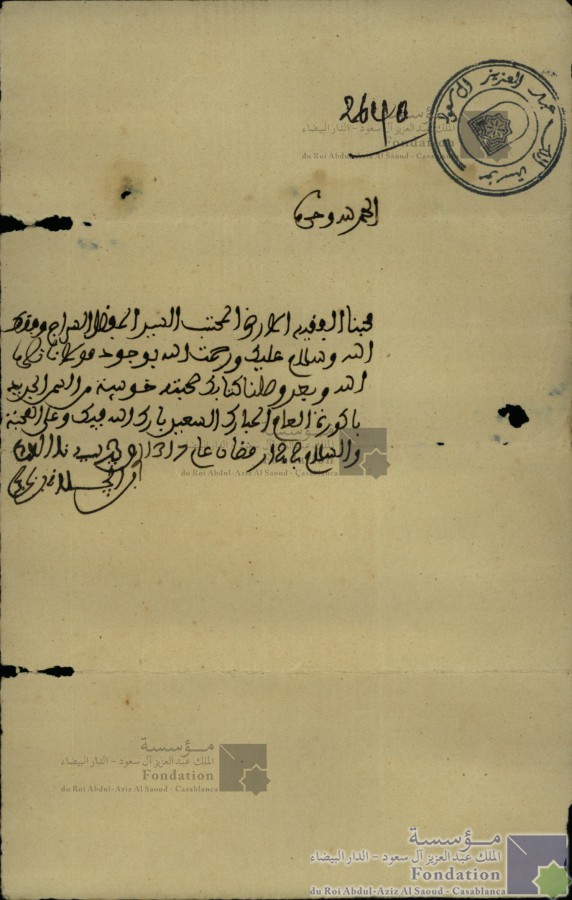 2640
مؤسسة عبد العزيز آل سعود
الحمد لله وحده
محبنا الفقيه الارضى المحتسب السيد المفضل السراج وفقك
الله وسلام عليك ورحمت الله بوجود مولانا نصره
الله وبعد وصلنا كتابك صحبته خوشة من التمر الجديد
باكورة العام المبارك السعيد بارك الله فيك وعلى المحبة
والسلام 22 رمضان عام 1317
مؤسسة
الملك عبد العزيز آل سعود - الدار البيضاء
Fondation
du Roi Abdul-Aziz Al Saoud - Casablanca
مؤسسة
الملك عبد العزيز آل سعود - الدار البيضاء
Fondation
du Roi Abdul-Aziz Al Saoud - Casablanca
مؤسسة
الملك عبد العزيز آل سعود - الدار البيضاء
Fondation
du Roi Abdul-Aziz Al Saoud - Casablanca
مؤسسة
الملك عبد العزيز آل سعود - الدار البيضاء
Fondation
du Roi Abdul-Aziz Al Saoud - Casablanca